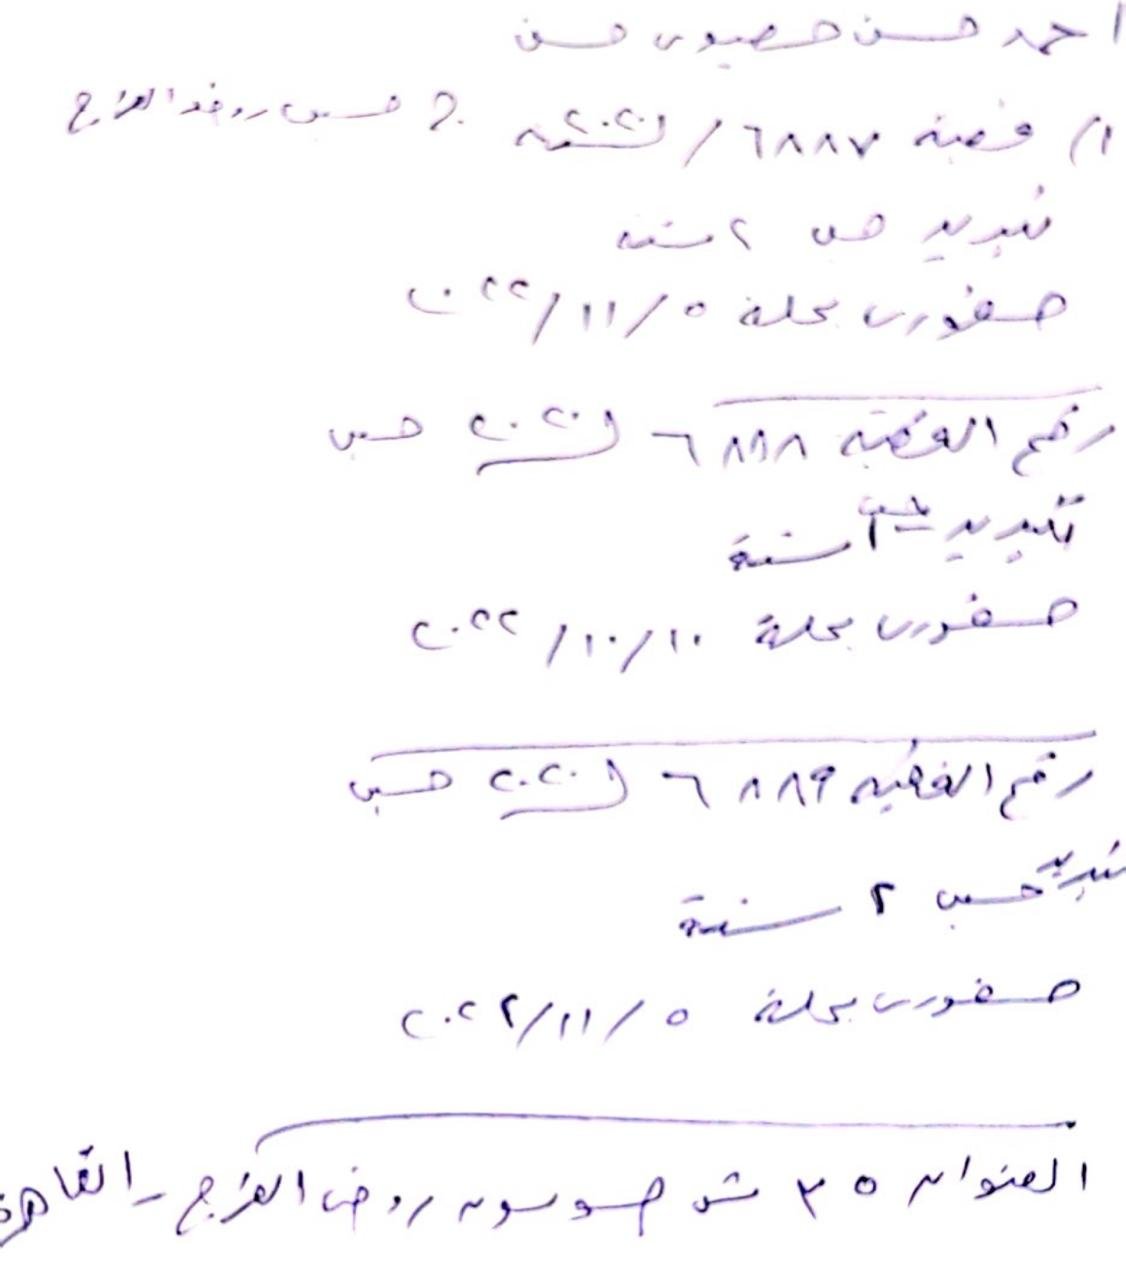 احمد حسن حسن
١) قضية ٦٨٨٧ / لسنة ٢٠٢٠ ج حبس روض الفرج
تبديد حبس ٢ سنة
حضورى بجلسة ٥ / ١١ / ٢٠٢٢
رقم القضية ٦٨٨٨ ل ٢٠٢٠ حبس
تبديد حبس سنة
حضورى بجلسة ١٠ / ١٠ / ٢٠٢٢
رقم القضية ٦٨٨٩ ل ٢٠٢٠ حبس
تبديد حبس ٢ سنة
حضورى بجلسة ٥ / ١١ / ٢٠٢٢
العنوان ٣٥ ش روض الفرج - القاهرة